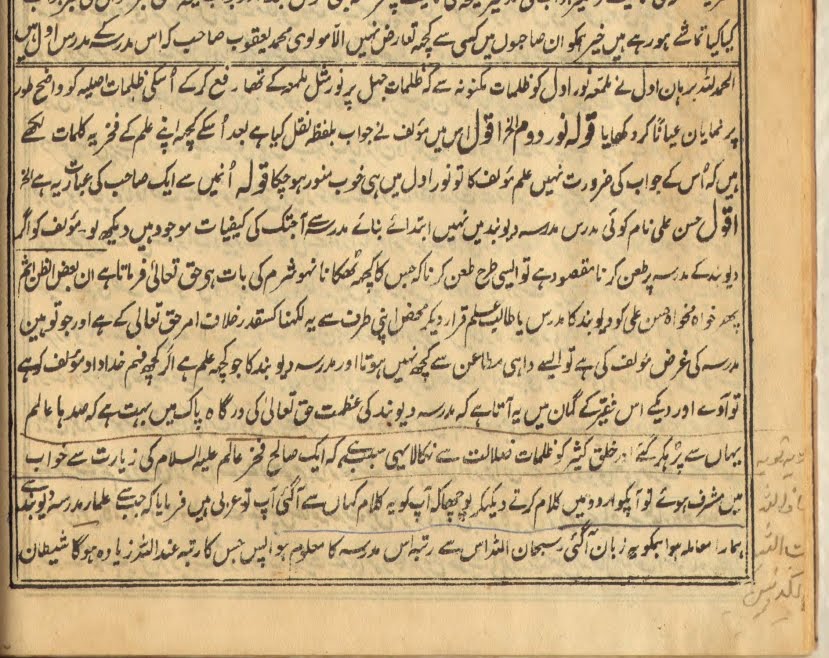 کیا کیا تماشے ہو رہے ہیں خیر ہمکو ان صاحبوں میں کسی سے کچھ تعارض نہیں الا مولوی محمد یعقوب صاحب کہ اس مدرسہ کے مدرس اول ہیں
الحمد للہ برہان اول نے لمعہ نور اول کو ظلمات مکنونہ سے کہ ظلمات جہل پر نور شل بلمعہ کے تھا رفع کرکے اُسکی ظلمات اصلیہ کو واضح طور
پر نمایان عیانًا کر دکھایا قولہ نور دوم الخ اقول اس میں مؤلف نے جواب بلفظہ نقل کیا ہے بعد اُسکے کچھ اپنے علم کے فخریہ کلمات لکھے
ہیں کہ اُس کے جواب کی ضرورت نہیں علم مؤلف کا تو نور اول میں ہی خوب منور ہو چکا قولہ اُنہیں سے ایک صاحب کی عبارت یہ ہے الخ
اقول حسن علی نام کوئی مدرس مدرسہ دیوبند میں نہیں ابتدائے بنائے مدرسہ سے آجتک کی کیفیات موجود ہیں دیکھ لو۔ مؤلف کو اگر
دیوبند کے مدرسہ پر طعن کرنا مقصود ہے تو ایسی طرح طعن کرنا کہ جس کا کچھ ٹھکانا نہو شرم کی بات ہی حق تعالیٰ فرماتا ہے ان بعض الظن اثم
پھر خواہ نخواہ حسن علی کو دیوبند کا مدرس یا طالب علم قرار دیکر محض اپنی طرف سے یہ لکھنا کسقدر خلاف امر حق تعالی کے ہے اور جو توہین
مدرسہ کی غرض مؤلف کی ہے تو ایسے واہی مطاعن سے کچھ نہیں ہوتا اور مدرسہ دیوبند کا جو کچھ علم ہے اگر کچھ فہم خداداد مؤلف کو ہے
تو آوے اور دیکھے اس فقیر کے گمان میں یہ آتا ہے کہ مدرسہ دیوبند کی عظمت حق تعالیٰ کی درگاہ پاک میں بہت ہے کہ صدہا عالم
یہاں سے پڑھکر گئے اور خلق کثیر کو ظلمات ضلالت سے نکالا یہی سبب ہے کہ ایک صالح فخر عالم علیہ السلام کی زیارت سے خواب
میں مشرف ہوئے تو آپکو اردو میں کلام کرتے دیکھکر پوچھا کہ آپ کو یہ کلام کہاں سے آگئی آپ تو عربی ہیں فرمایا کہ جب سے علماء مدرسہ دیوبند سے
ہمارا معاملہ ہوا ہمکو یہ زبان آگئی سبحان اللہ اس سے رتبہ اس مدرسہ کا معلوم ہوا پس جس کا رتبہ عند اللہ زیادہ ہوگا شیطان